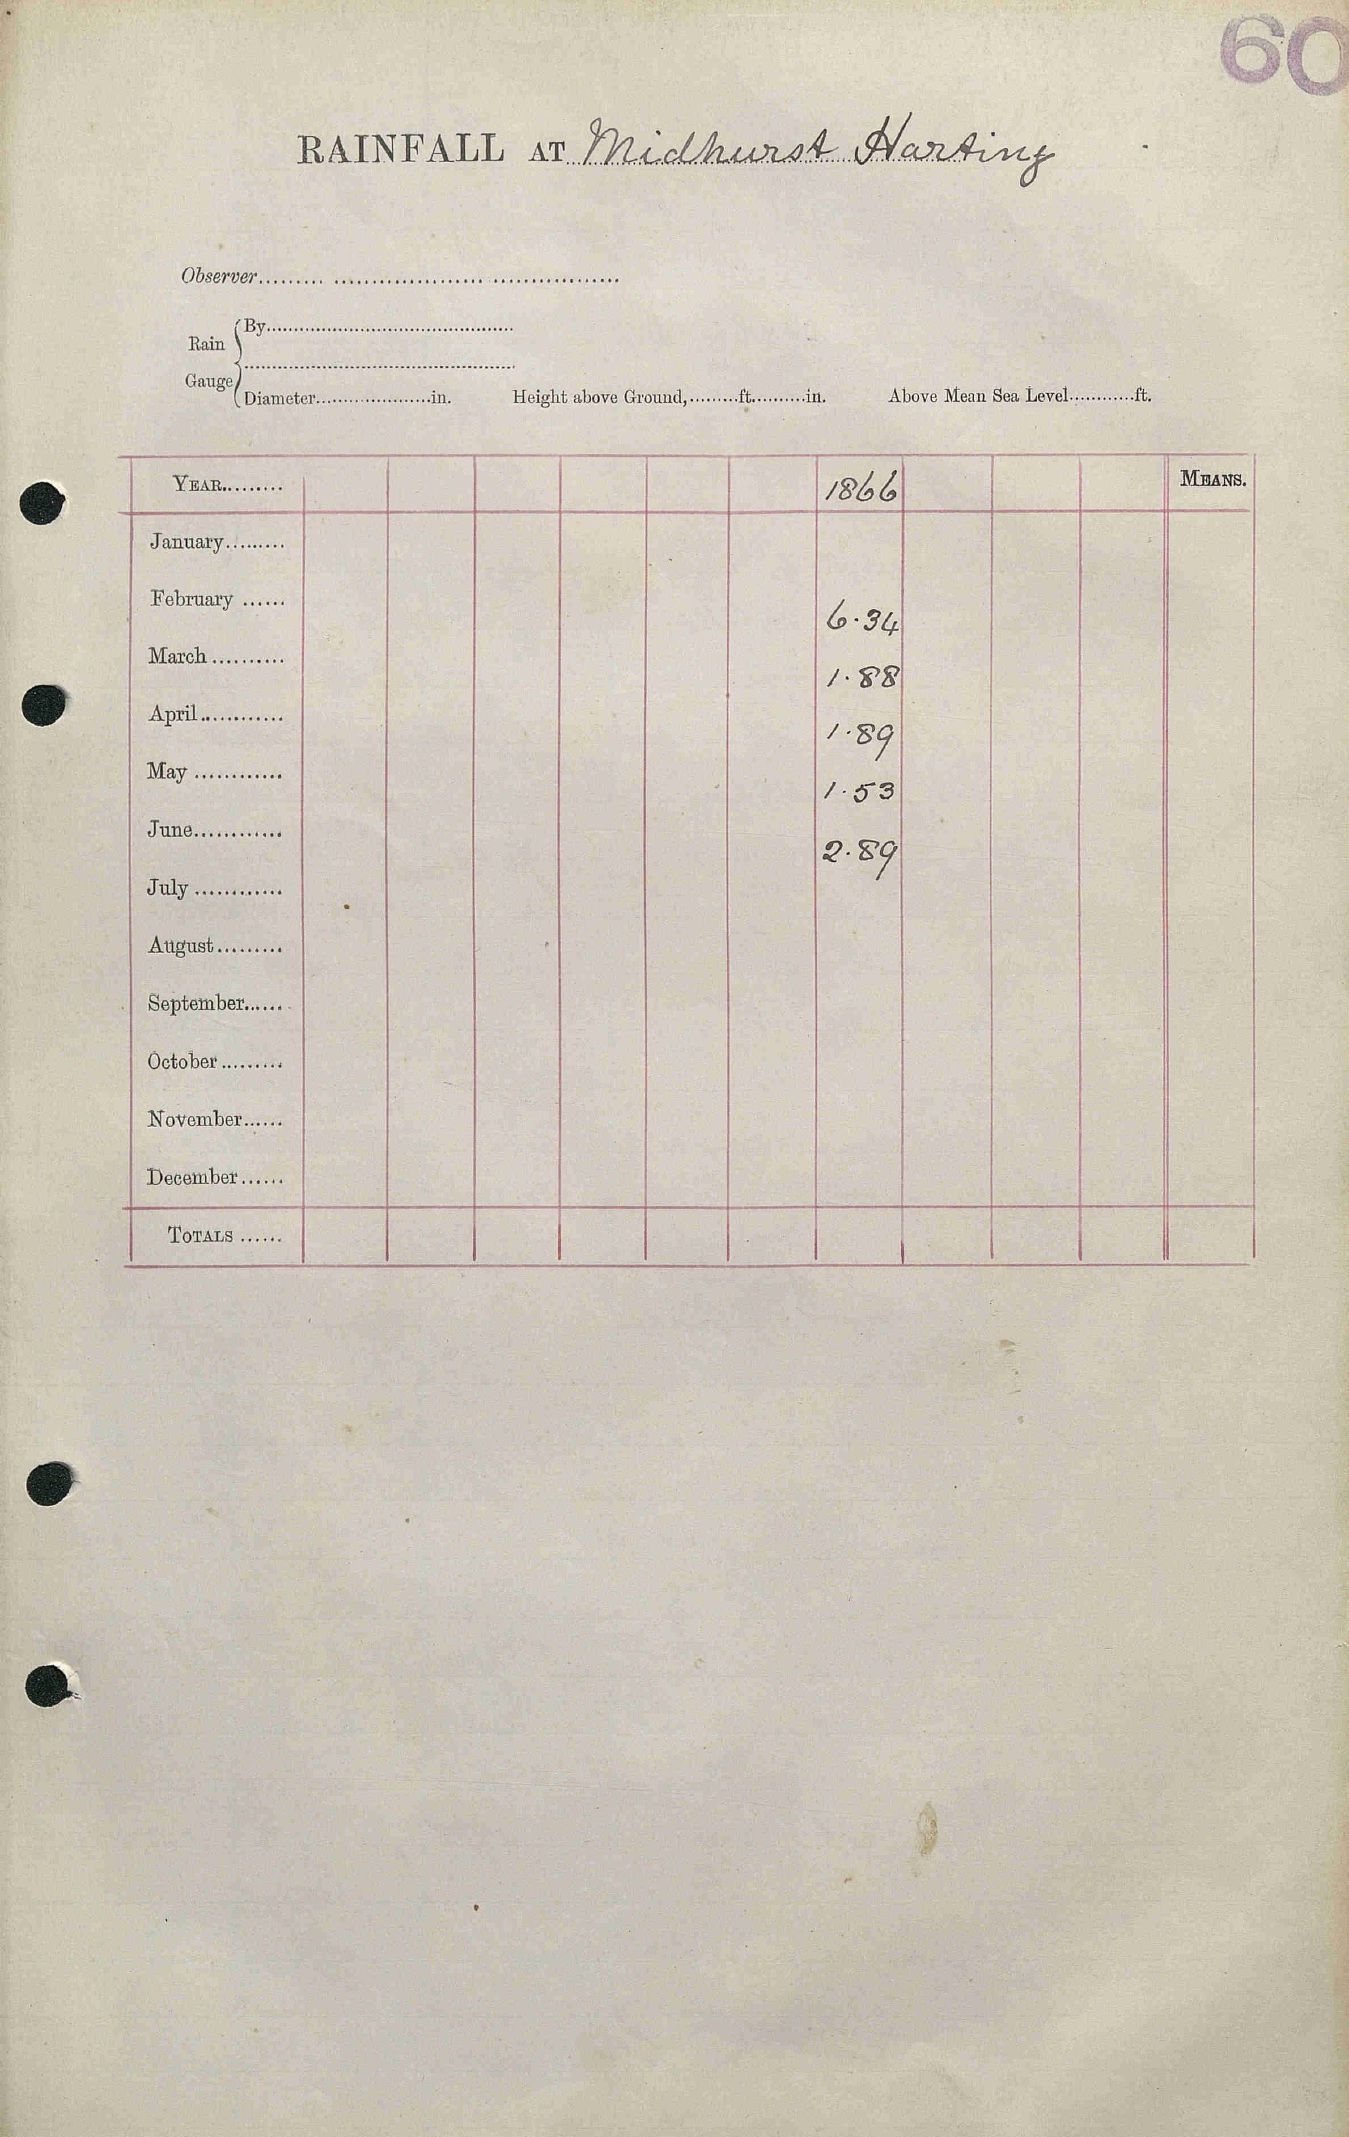 60
RAINFALL AT Midhurst Harting
Observer
Rain Gauge
By
Diameter in. Height above Ground, ft. in. Above Mean Sea Level ft.
YEAR 1866 MEANS.
January
February 6.34
March 1.88
April 1.89
May 1.53
June 2.89
July
August
September
October
November
December
TOTALS